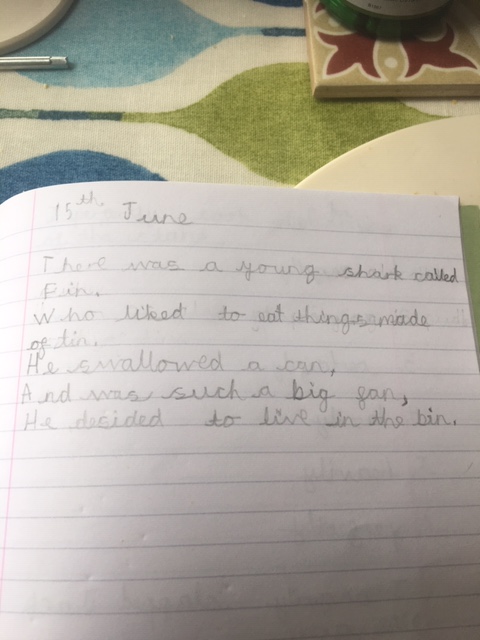 15th June
There was a young shark called
Fin.
Who liked to eat things made
of tin.
He swallowed a can,
And was such a big fan,
He decided to live in the bin.